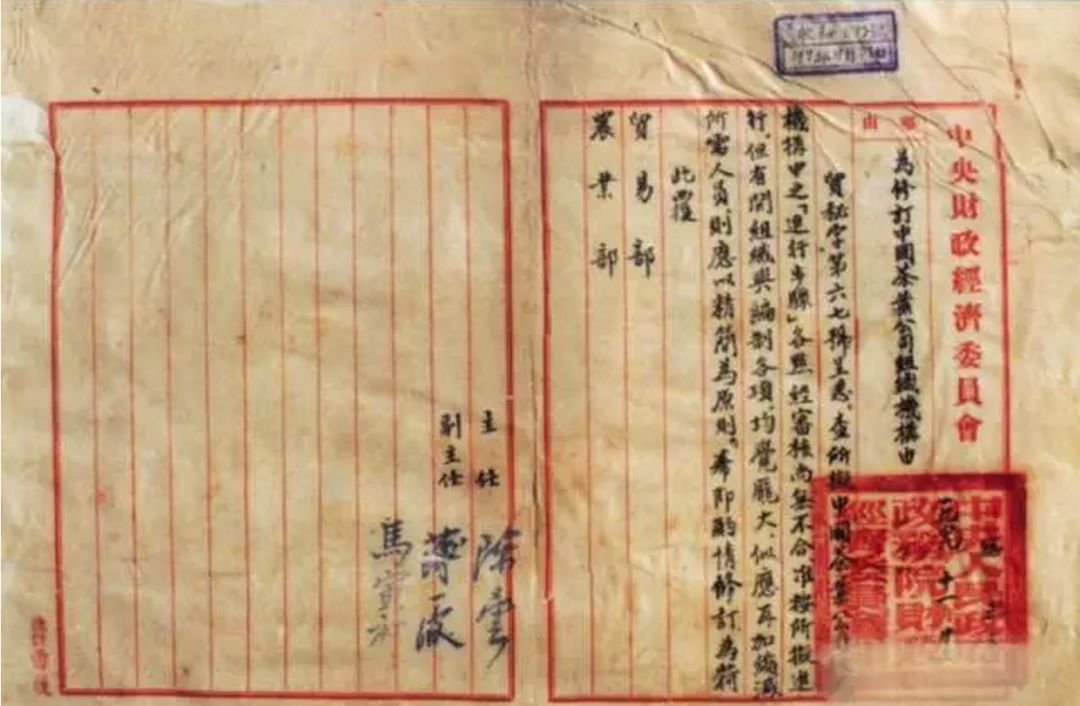 中央財政經濟委員會
事由
為修訂中國茶葉公司組織機構由
貿秘字第六七號呈悉。查所擬中國茶業公司
機構中之「進行步驟」各點，經審核尚無不合，准按所擬進
行。但有關組織與編制各項，均覺龐大，似應再加縮減，
所需人員，則應以精簡為原則。希即酌情修訂為荷
此覆
貿易部
農業部
主任 陳雲
副主任 薄一波
馬寅初